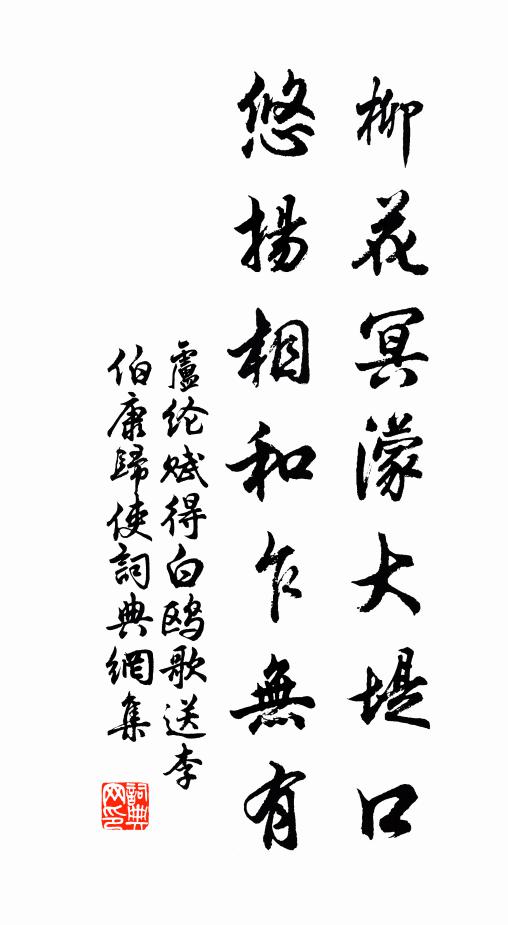 柳花冥濛大堤口
悠揚相和乍無有
盧纶赋得白鸥歌送李
伯康歸使詞典網集
詞典网印